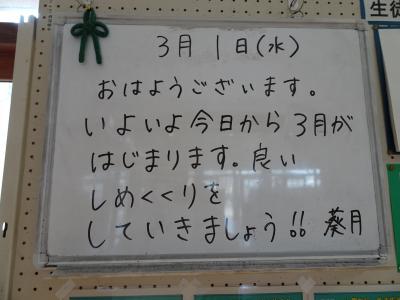 生徒
3月1日(水)
おはようございます。
いよいよ今日から3月が
はじまります。良い
しめくくりを
していきましょう!! 葵月